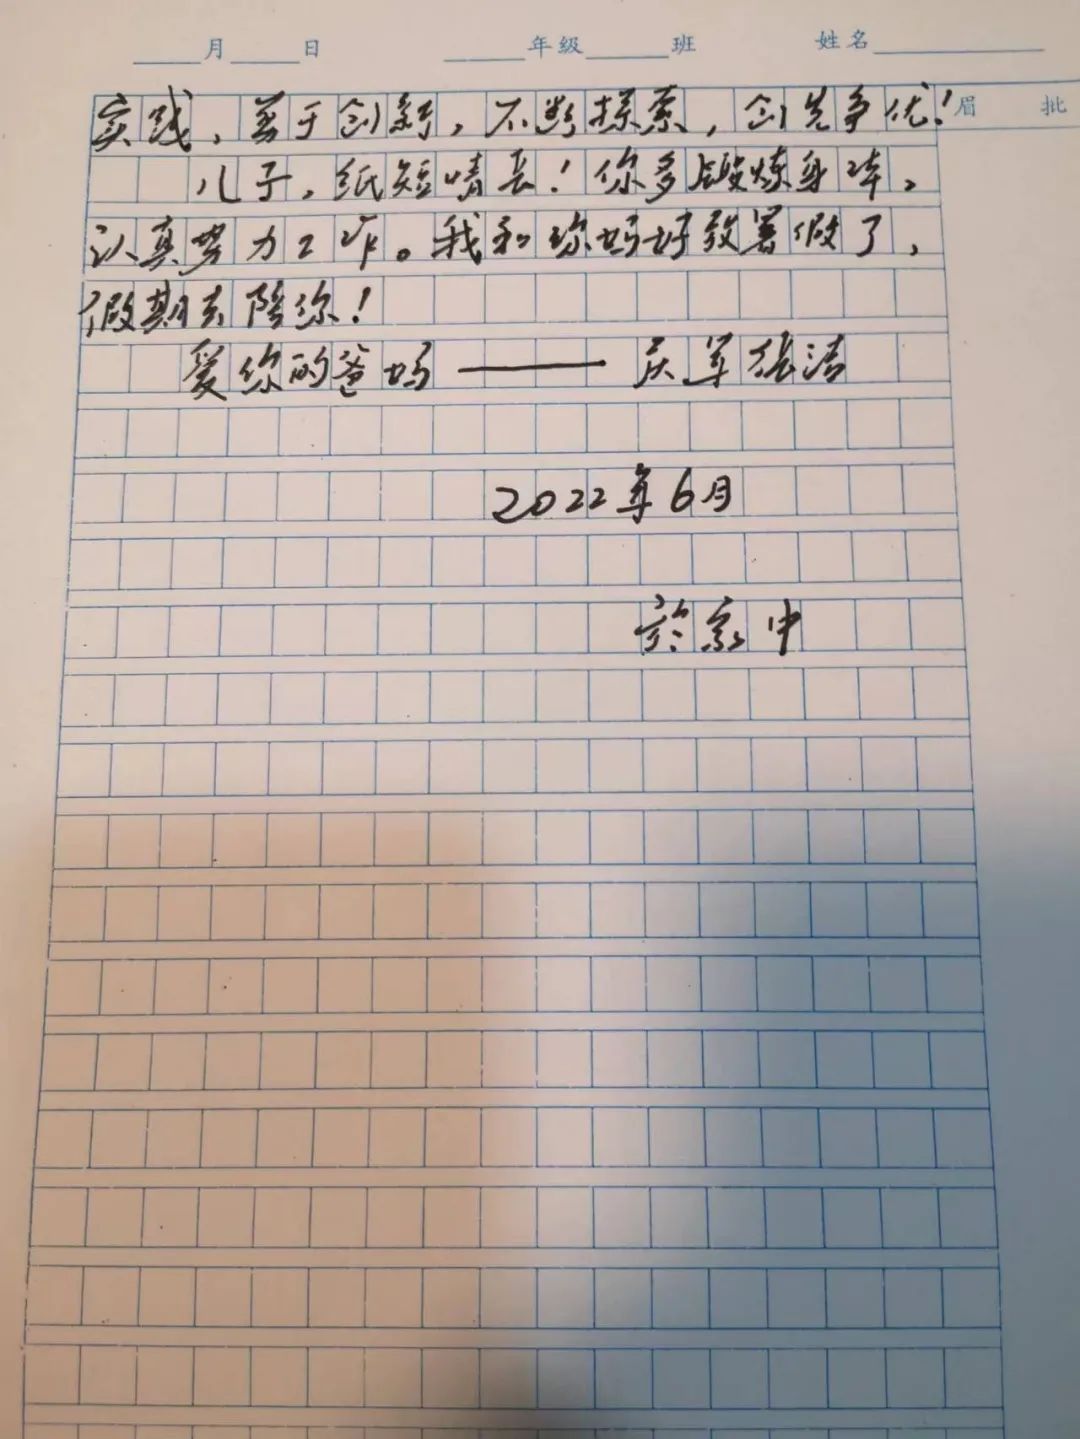 月 日 年级 班 姓名
实践，善于创新，不断探索，创先争优！
眉 批
儿子，纸短情长！你多锻炼身体，
认真努力工作。我和你妈妈放暑假了，
假期去陪你！
爱你的爸妈——庆军 张洁
2022年6月
於家中